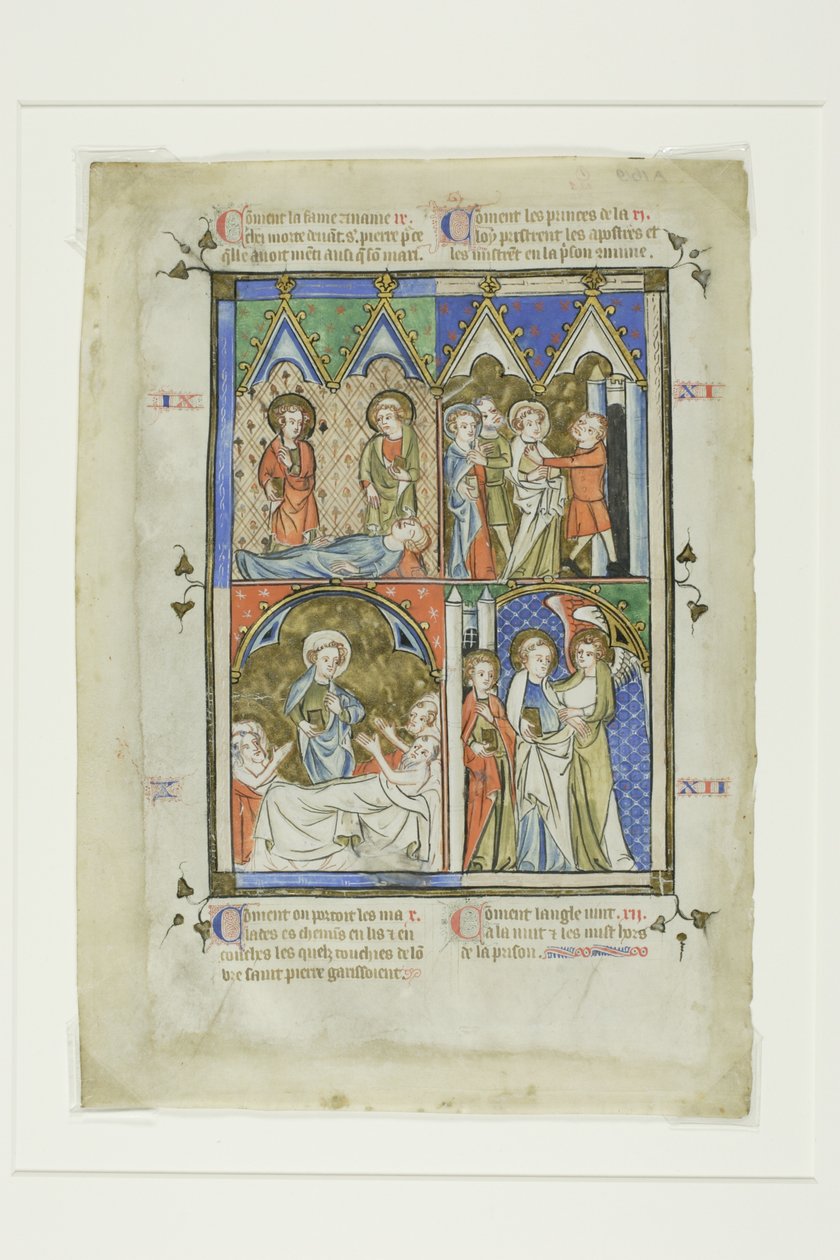 Cōment la fame aname ix.
chei morte devāt. s͛. pierre p̄ ce
qlle avoit mēti ausi q̄ sō mari.
Coment les princes de la xj.
loy pristrent les apostres et
les mistrēt en la p̄son
IX
XI
X
XII
Cōment on portoit les ma x.
lades es chemīs en lis ⁊ en
couches les quelz touchies de lō
bre saint pierre garissoient
Coment langle vint .xij.
a la nuit ⁊ les mist hors
de la prison.